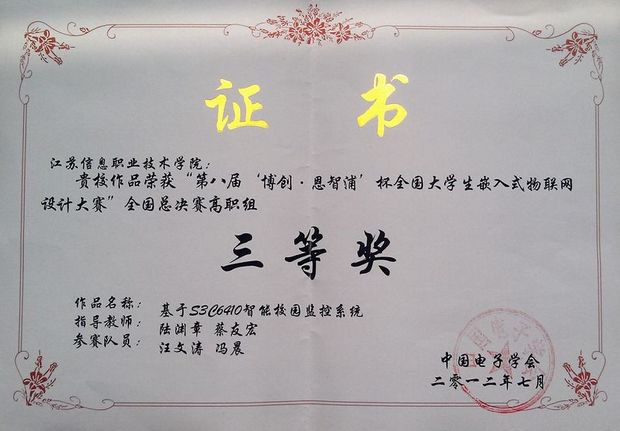 证 书
江苏信息职业技术学院：
贵校作品荣获“第八届‘博创·恩智浦’杯全国大学生嵌入式物联网
设计大赛”全国总决赛高职组
三等奖
作品名称： 基于S3C6410智能校园监控系统
指导教师： 陆渊章 蔡友宏
参赛队员： 汪文涛 冯晨
中国电子学会
二零一二年七月